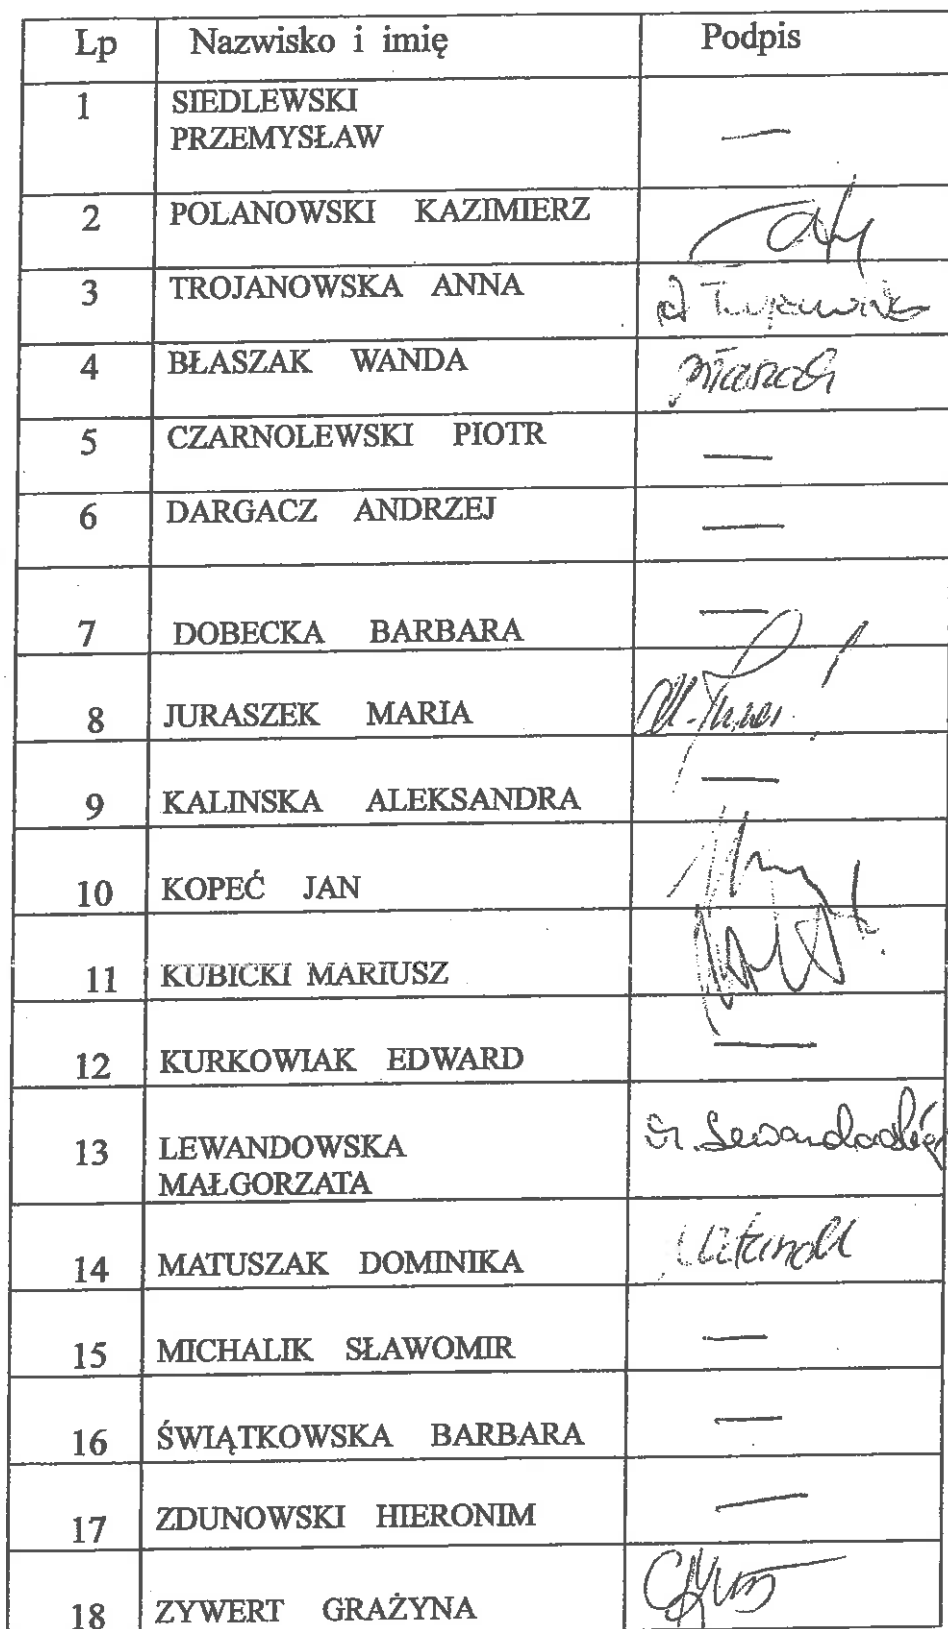 Lp Nazwisko i imię Podpis
1 SIEDLEWSKI
PRZEMYSŁAW —
2 POLANOWSKI KAZIMIERZ
3 TROJANOWSKA ANNA
4 BŁASZAK WANDA
5 CZARNOLEWSKI PIOTR —
6 DARGACZ ANDRZEJ —
7 DOBECKA BARBARA —
8 JURASZEK MARIA
9 KALINSKA ALEKSANDRA —
10 KOPEĆ JAN
11 KUBICKI MARIUSZ
12 KURKOWIAK EDWARD —
13 LEWANDOWSKA
MAŁGORZATA
14 MATUSZAK DOMINIKA
15 MICHALIK SŁAWOMIR —
16 ŚWIĄTKOWSKA BARBARA —
17 ZDUNOWSKI HIERONIM —
18 ZYWERT GRAŻYNA